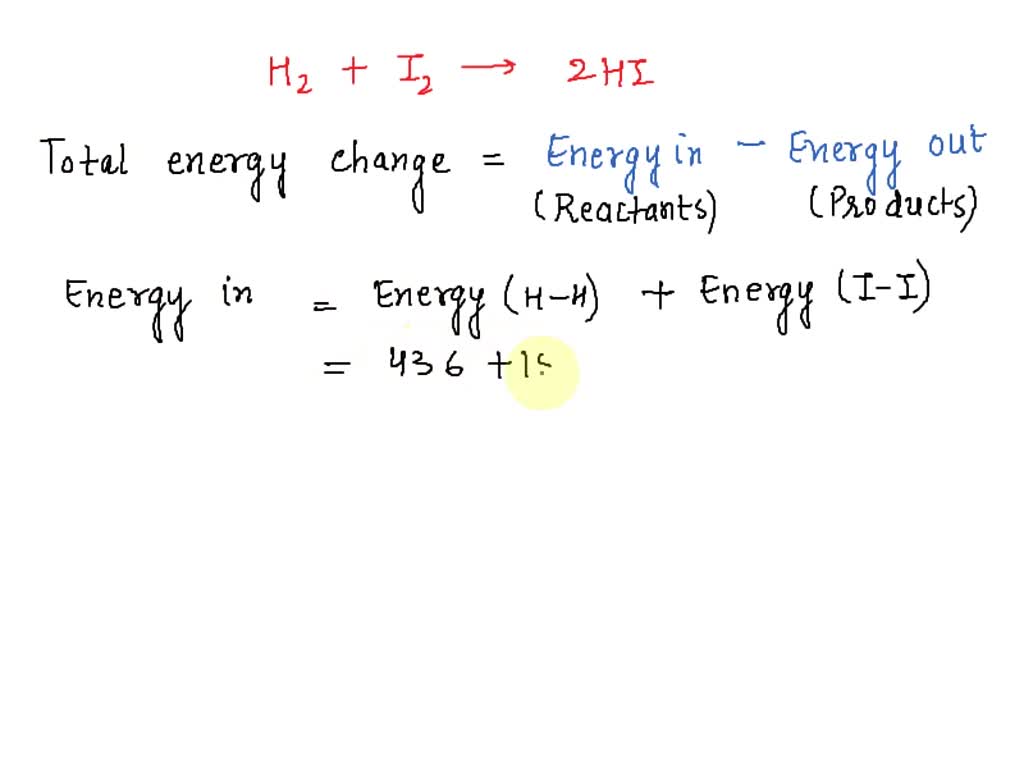 H₂ + I₂ → 2HI
Total energy change = Energy in - Energy out
(Reactants) (Products)
Energy in = Energy (H-H) + Energy (I-I)
= 436 +